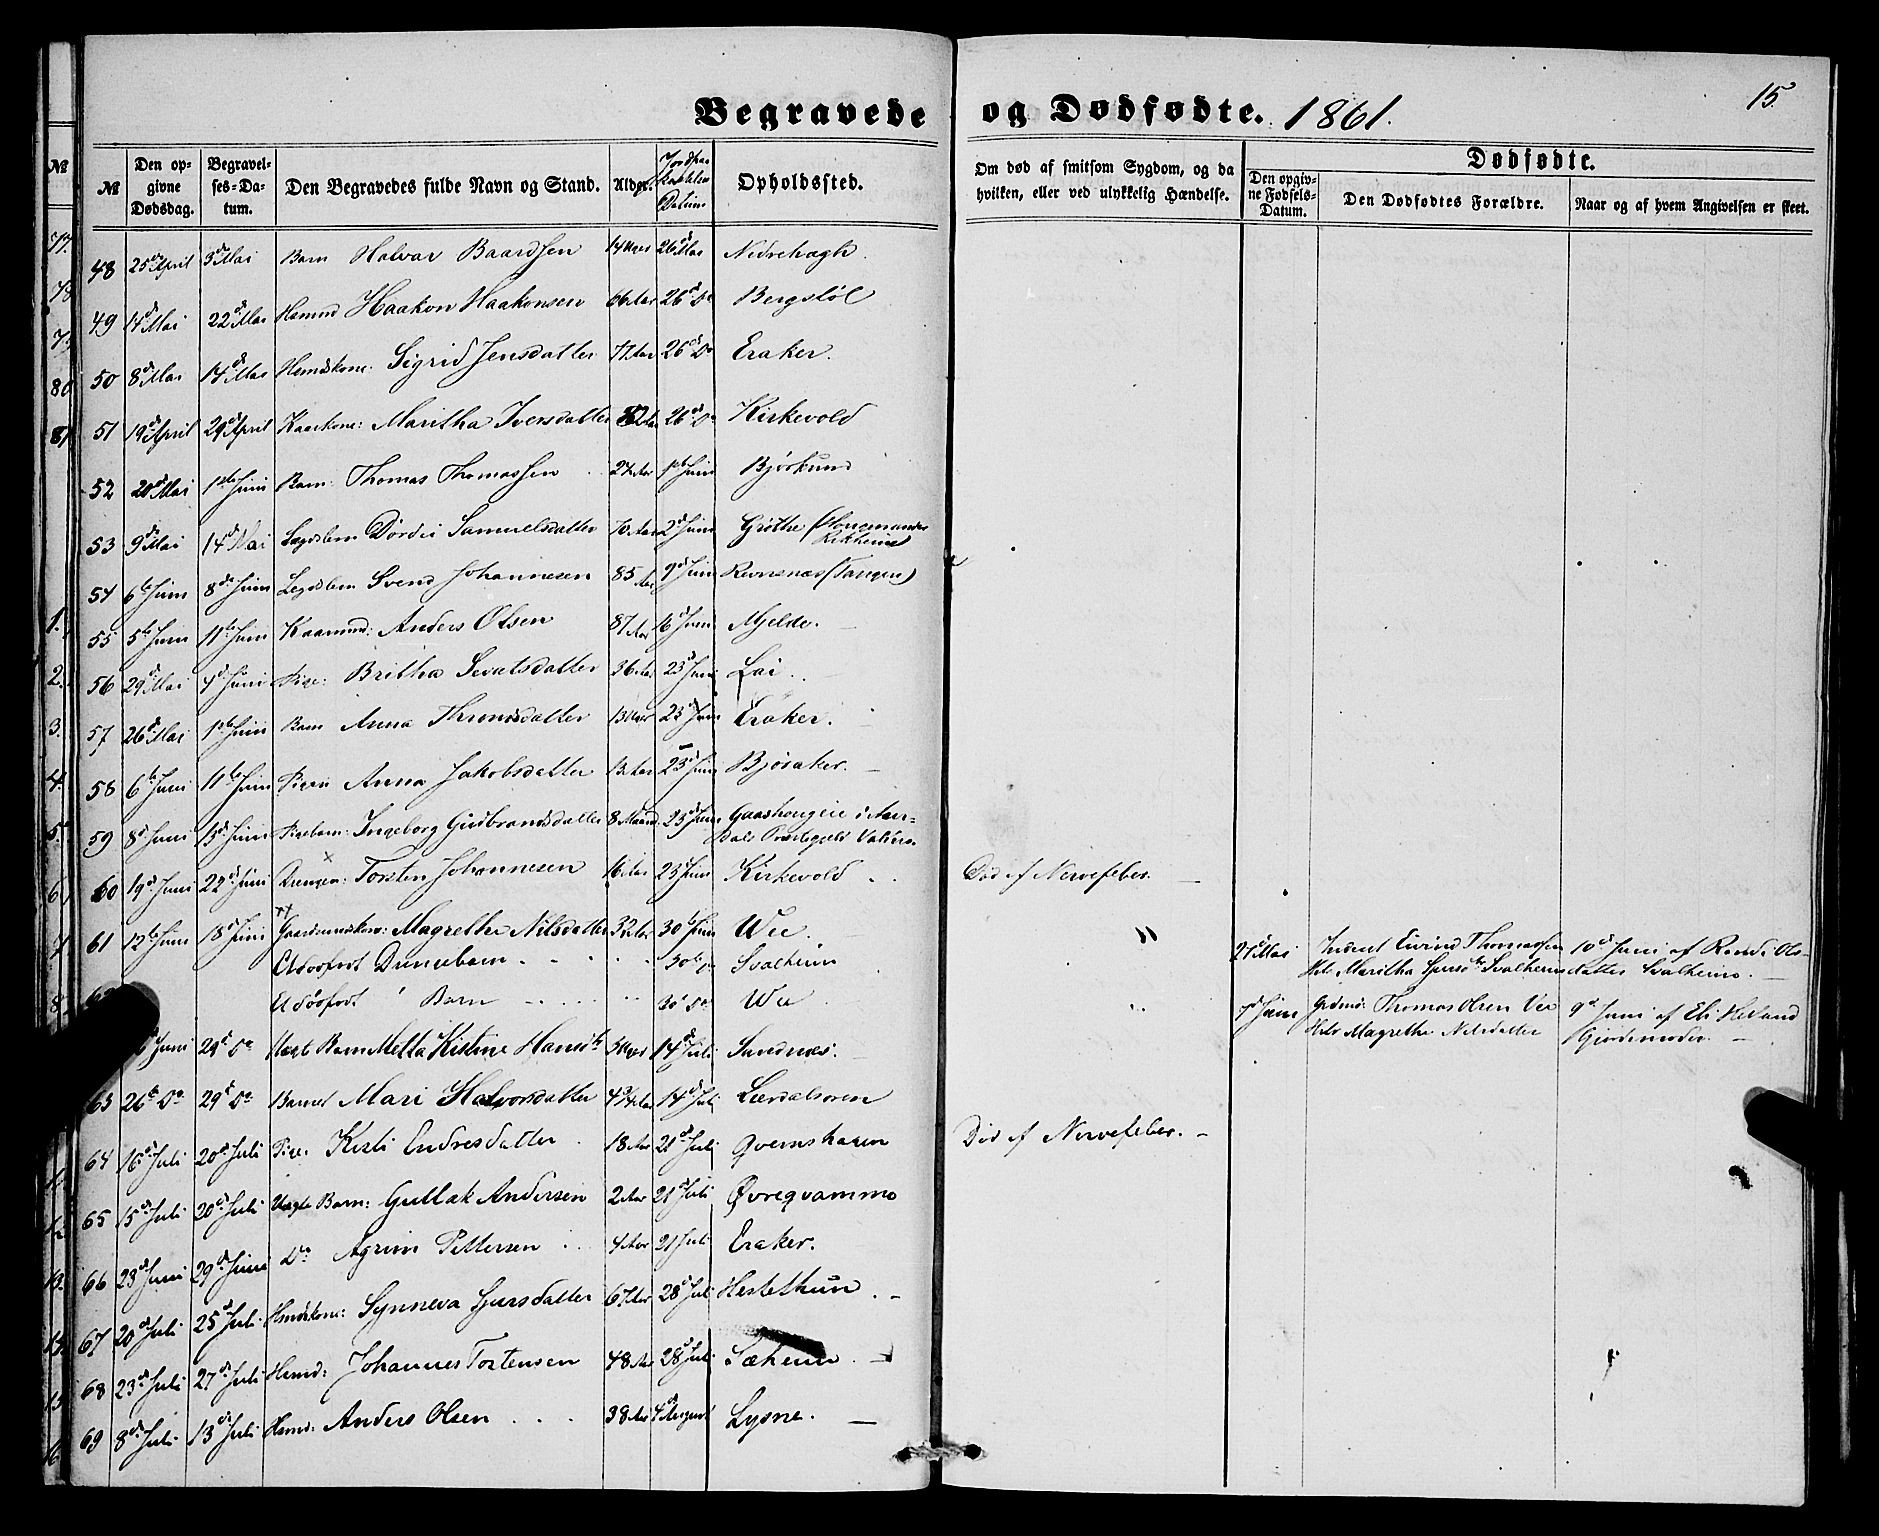 Begravede og Dødfødte. 1861. 15.
№ Den opgivne Dødsdag. Begravelses-Datum. Den Begravedes fulde Navn og Stand. Alder. Datum Opholdssted. Om død af smitsom Sygdom, og da hvilken, eller ved ulykkelig Hændelse. Dødfødte. Den opgivne Fødsels-Datum. Den Dødfødtes Forældre. Naar og af hvem Angivelsen er skeet.
48 25de April 3d Mai Barn Halvar Baardsen 14 Uger 26d Mai Nedrehægh.
49 14d Mai 22d Mai Hsmnd Haakon Haakonsen 66 Aar 26d Do Bergstøl
50 8d Mai 14d Mai Hsmdskone. Sigrid Jensdatter 77 Aar 26d Do Eraker.
51 19d April 29d April Kaarkone: Maritha Iversdatter 82 Aar 26d Do Kirkevold
52 20d Mai 1ste Juni Barn: Thomas Thomassen 1ste Juni Bjørkum
53 9d Mai 14d Mai Lægdslem Dordei Samuelsdatter 70 Aar 2d Juni Grøthe
54 6te Juni 8de Juni Legdslem Svend Johannesen 85 Aar 9d Juni Revnenæs (Tangen)
55 5te Juni 11te Juni Kaarmnd: Anders Olsen 87 Aar 16 Juni Mjelde.
56 29d Mai 4d Juni Pige: Britha Sevatsdatter 36 Aar 23d Juni Loi.
57 26d Mai 1ste Juni Barn Anna Thronsdatter 13 Uger 23d Juni Eraker.
58 6te Juni 11te Juni Pigen Anna Jakobsdatter 13 Aar 23d Juni Bjøraker.
59 8d Juni 13d Juni Pigebarn: Ingeborg Gudbrandsdatter 8 Maaned 23d Juni Gaashougeie i Aur-
dals Præstegjeld Valders.
60 19d Juni 22d Juni Drengen: Torsten Johannesen 16 Aar 23 Juni Kirkevold Død af Nervefeber.
61 12te Juni 18d Juni Gaardmandskone: Magrethe Nilsdatter 32 Aar 30te Juni Wee. "
Et dødfødt Drengebarn 30te Do Svalheim 27d Mai Inderst Eivind Thomassen 10d Juni af Randi Ols-
Hst Maritha Sjursdtr Svalheim datter Svalheim.
Et dødfødt Barn 30d Do We 7d Juni Grdmd: Thomas Olsen Vee 9d Juni af Eli Hevland
Hst Magrethe Nilsdatter Gjordemoder.
Juni 29d Do Uægt Barn Metta Kistine Hansdtr 3 Uger 14d Juli Sandnæs.
63 26te Do 29d Do Barnet Mari Halvorsdatter 4 3/4 Aar 14d Juli Lærdalsøren
64 16d Juli 20d Juli Pige: Kisti Endresdatter 18 Aar 21d Juli Qvernshagen Død af Nervefeber.
65 15d Juli 20d Juli Uægte Barn: Gullak Andersen 2 Aar 21d Juli Øvreqvamme
66 23d Juni 29d Juni Do Agrim Pettersen 4 Aar 21 Juli Eraker.
67 20d Juli 25d Juli Hsmdskone: Synneva Sjursdatter 67 Aar 28d Juli Hestethun
68 23d Juli 27d Juli Hsmd: Johannes Torstensen 48 Aar 28d Juli Sæheim
69 8d Juli 13d Juli Hsmd: Anders Olsen 38 Aar 4d August Lysne.